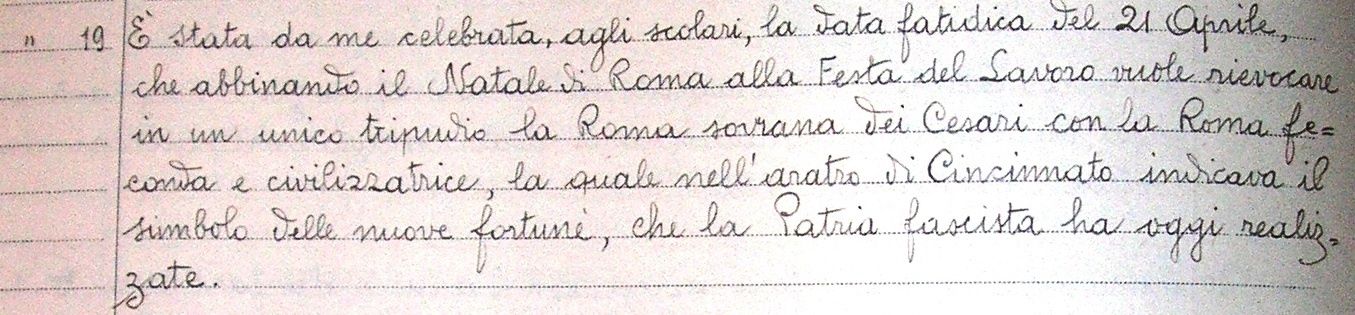 " 19 È stata da me celebrata, agli scolari, la data fatidica del 21 Aprile,
che abbinando il Natale di Roma alla Festa del Lavoro vuole rievocare
in un unico tripudio la Roma sovrana dei Cesari con la Roma fe=
conda e civilizzatrice, la quale nell'aratro di Cincinnato indicava il
simbolo delle nuove fortune, che la Patria fascista ha oggi realiz=
zate.